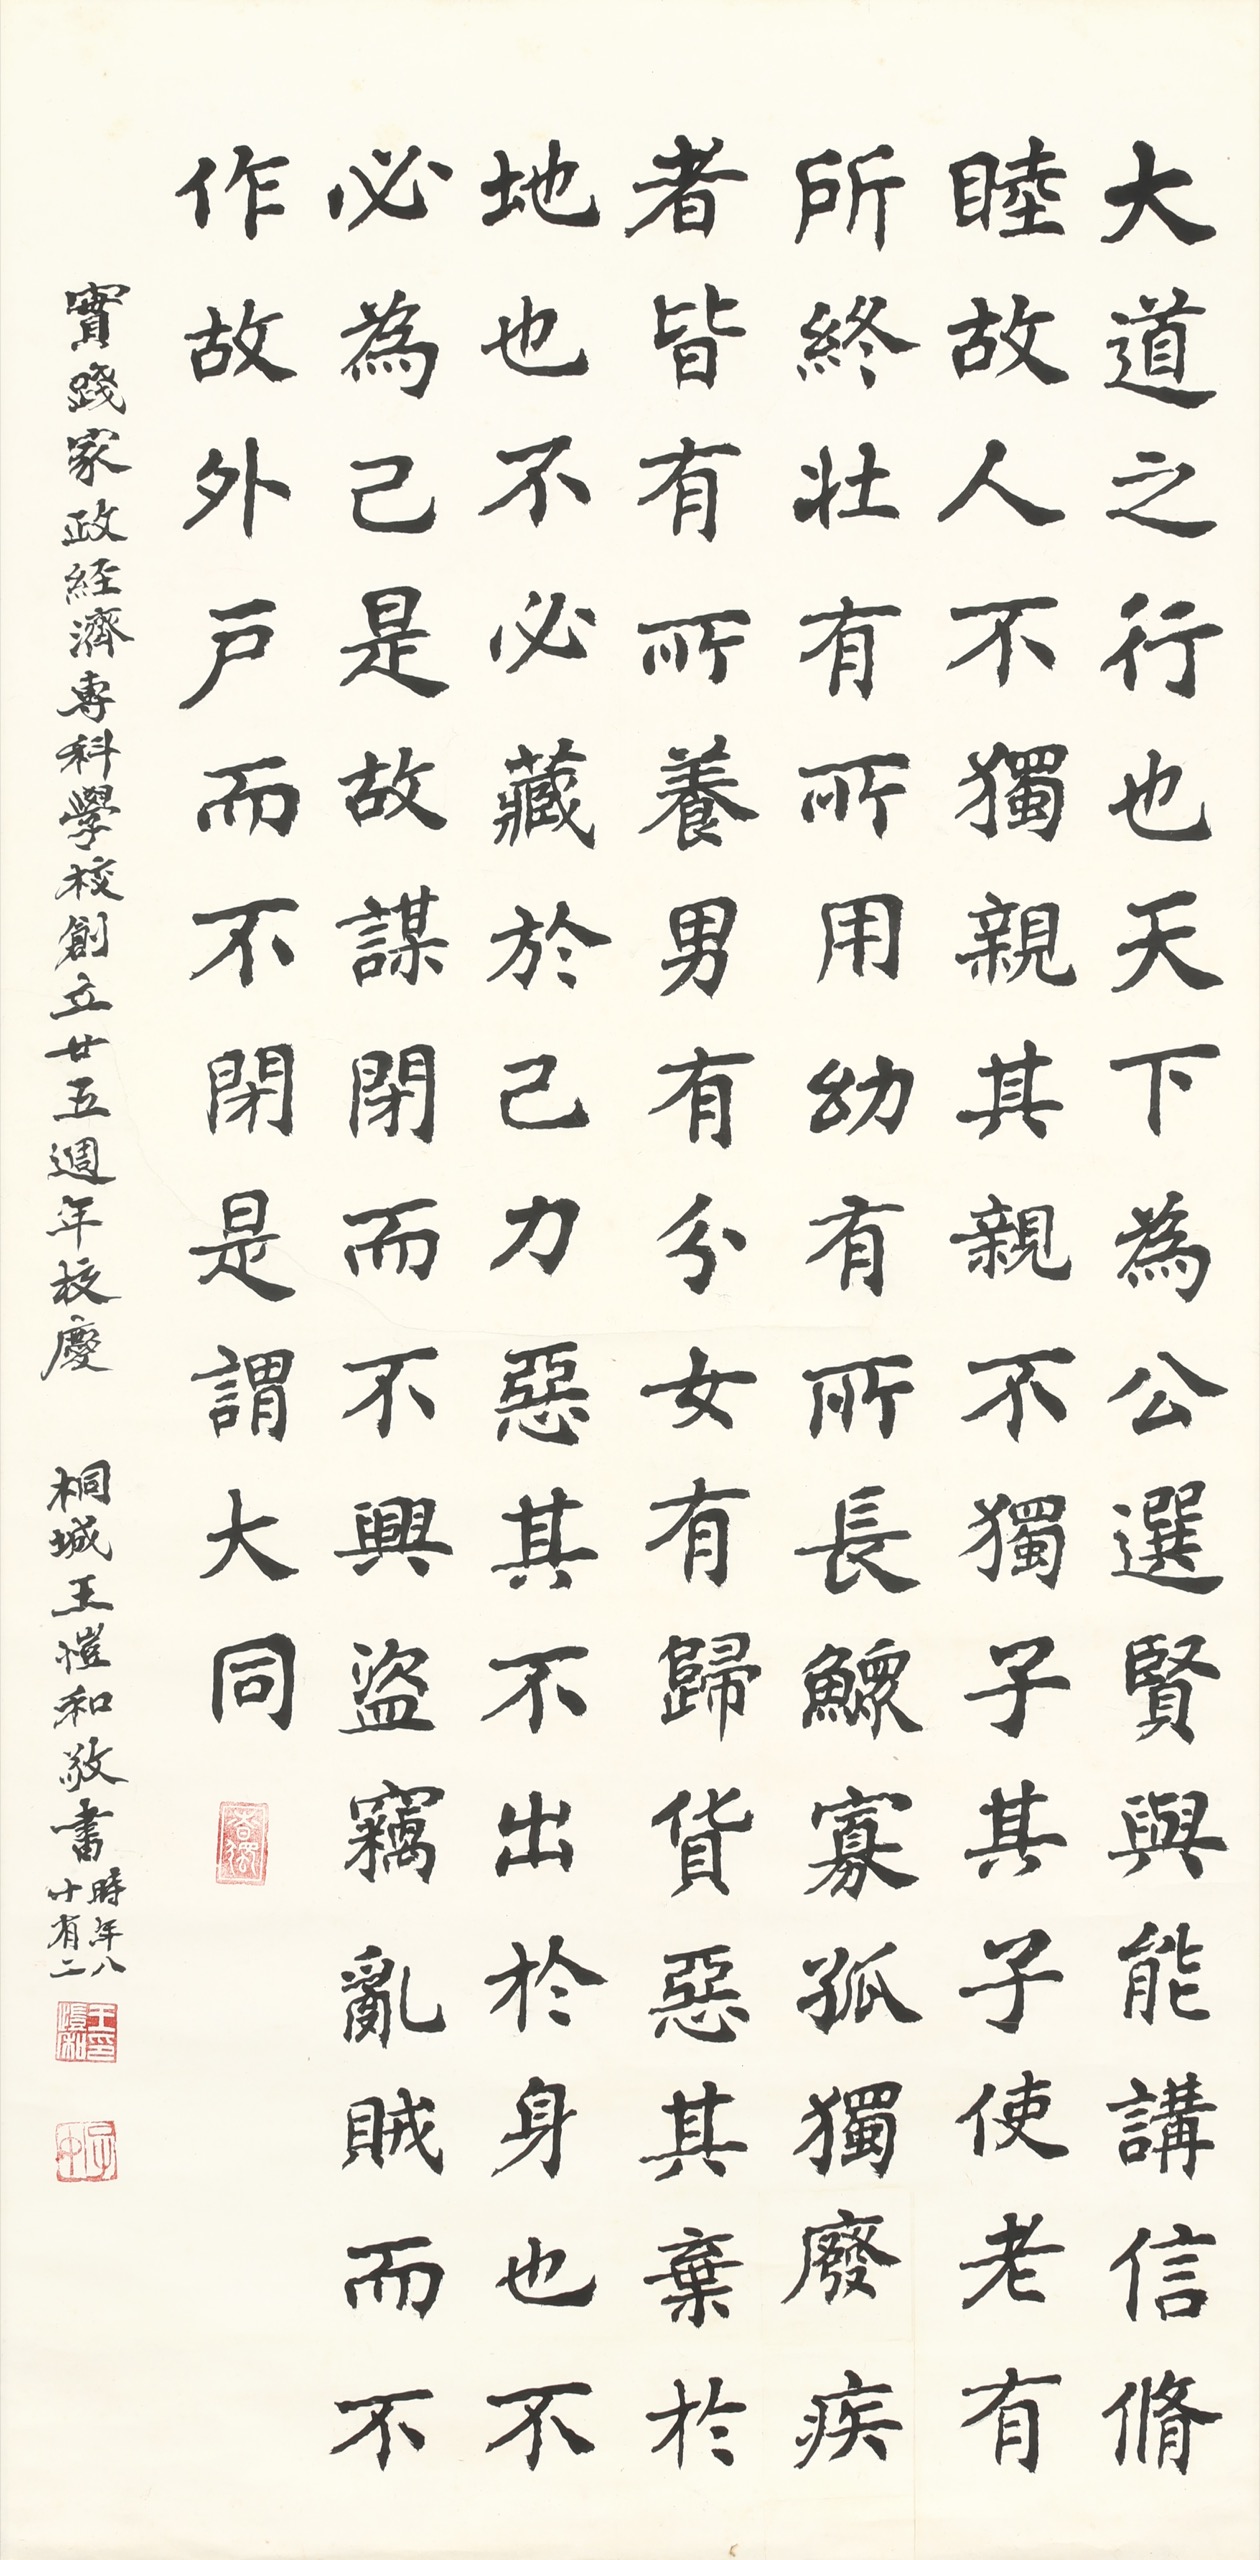 大道之行也天下為公選賢與能講信脩
睦故人不獨親其親不獨子其子使老有
所終壯有所用幼有所長鰥寡孤獨廢疾
者皆有所養男有分女有歸貨惡其棄於
地也不必藏於己力惡其不出於身也不
必為己是故謀閉而不興盜竊亂賊而不
作故外戶而不閉是謂大同
實踐家政經濟專科學校創立廿五週年校慶
桐城王愷和敬書
時年八
十有二
慎獨
王愷和印